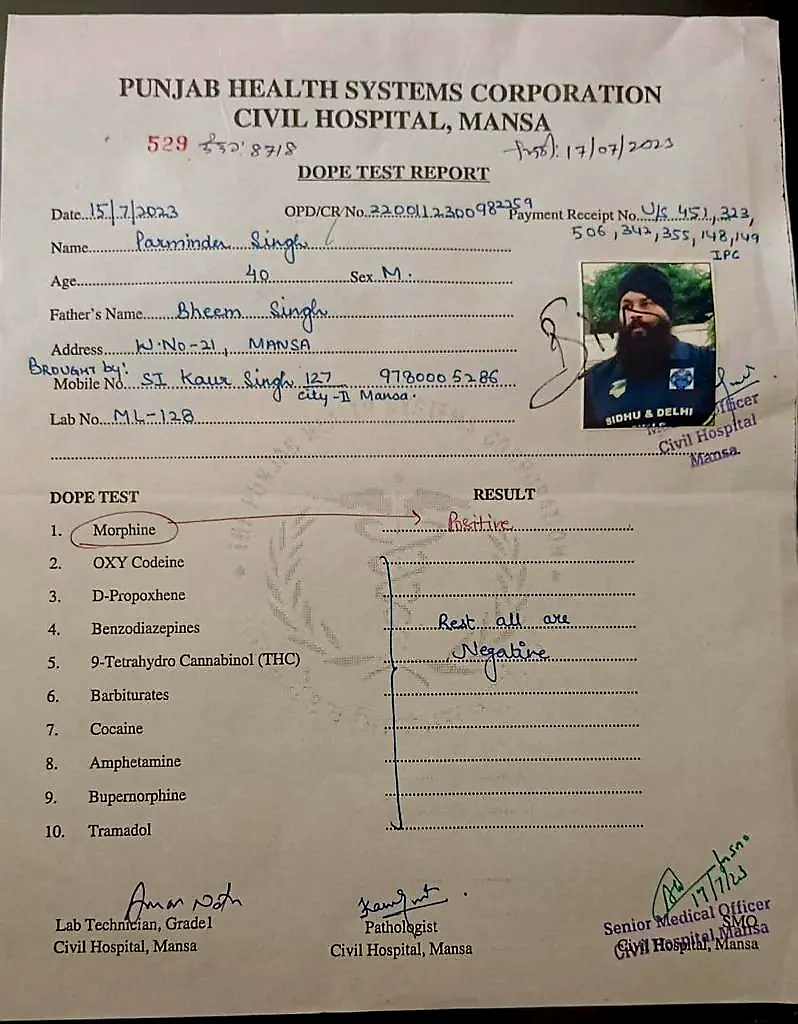 PUNJAB HEALTH SYSTEMS CORPORATION
CIVIL HOSPITAL, MANSA
529 8718 17/07/2023
DOPE TEST REPORT
Date..15/7/2023 OPD/CR No.2200112300982259 Payment Receipt No. U/S 451, 323,
506, 342, 355, 148, 149
IPC
Name... Parminder Singh
Age... 40 Sex M.
Father's Name... Bheem Singh
Address... W.No-21, MANSA
BROUGHT by:
Mobile No. SI Kaur Singh 127 9780005286
City-II Mansa.
Lab No. ML-128
SIDHU & DELHI
Officer
Civil Hospital
Mansa
DOPE TEST RESULT
1. Morphine Positive
2. OXY Codeine
3. D-Propoxhene
4. Benzodiazepines Rest all are
5. 9-Tetrahydro Cannabinol (THC) Negative
6. Barbiturates
7. Cocaine
8. Amphetamine
9. Bupernorphine
10. Tramadol
Amar Nath
17/7/23
Lab Technician, Grade1 Pathologist SMO
Civil Hospital, Mansa Civil Hospital, Mansa Civil Hospital, Mansa
Senior Medical Officer
Civil Hospital Mansa